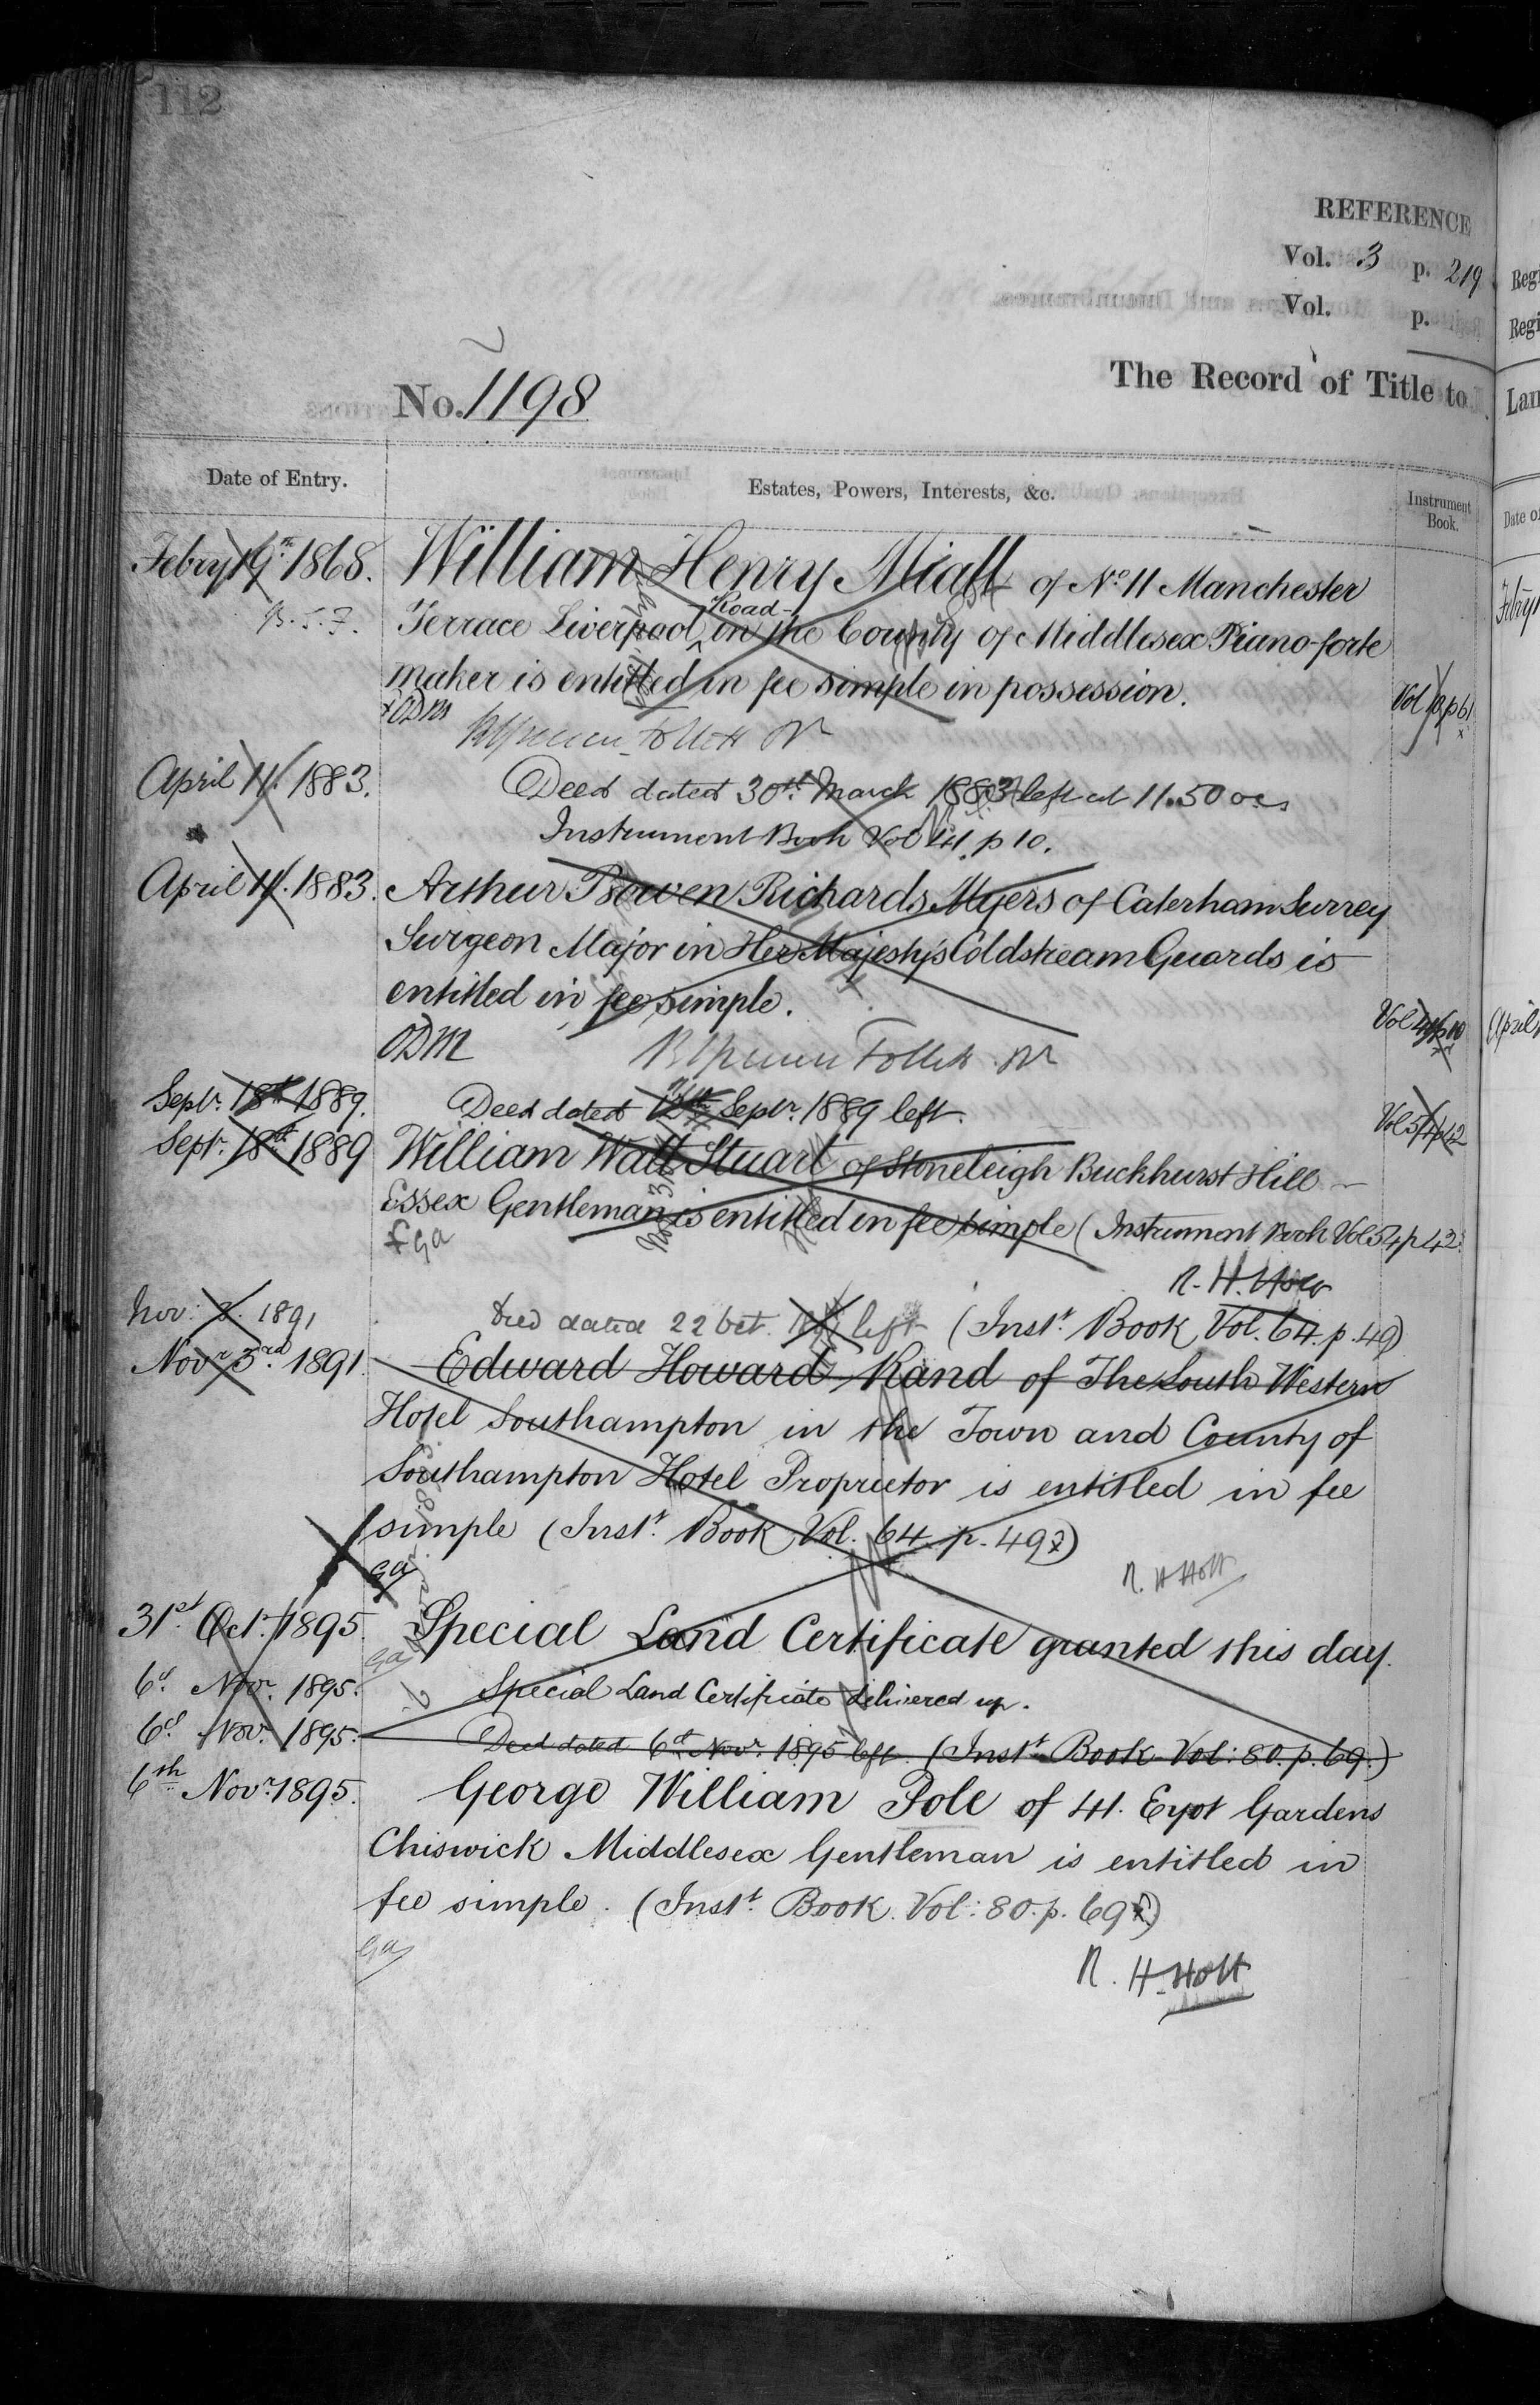 112
REFERENCE
Vol. 3 p. 219
Vol. p.
The Record of Title to
No. 1198
Date of Entry.
Estates, Powers, Interests, &c.
Instrument Book.
Febry 19th 1868. William Henry Miall of No 11 Manchester
Terrace Liverpool Road in the County of Middlesex Piano-forte
maker is entitled in fee simple in possession. Vol 10 p 61
ODM
April 11. 1883. Deed dated 30th March 1883 left at 11.50
Instrument Book Vol 41. p 10.
April 11. 1883. Arthur Bowen Richards Myers of Caterham Surrey
Surgeon Major in Her Majesty's Coldstream Guards is
entitled in fee simple. Vol 41 p 10
ODM
Septr. 18th 1889. Deed dated Septr. 1889 left. Vol 54 p 42
Septr. 18th 1889 William Watt Stuart of Stoneleigh Buckhurst Hill
Essex Gentleman is entitled in fee simple (Instrument Book Vol 54 p 42
R. H. Holt
Nov: 3. 1891 Deed dated 22 Oct. 1891 left (Inst. Book Vol. 64. p. 49)
Novr 3rd 1891 Edward Howard Rand of The South Western
Hotel Southampton in the Town and County of
Southampton Hotel Proprietor is entitled in fee
simple (Inst. Book Vol. 64 p. 49)
R. H Holt
31st Octr. 1895. Special Land Certificate granted this day.
6th Novr. 1895. Special Land Certificate delivered up.
6th Novr. 1895. Deed dated 6th Novr. 1895 left. (Inst. Book Vol: 80. p. 69.)
6th Novr. 1895. George William Pole of 41. Eyot Gardens
Chiswick Middlesex Gentleman is entitled in
fee simple. (Inst. Book. Vol: 80. p. 69)
R. H. Holt
Reg
Regi
Lan
Date o
Febry
April